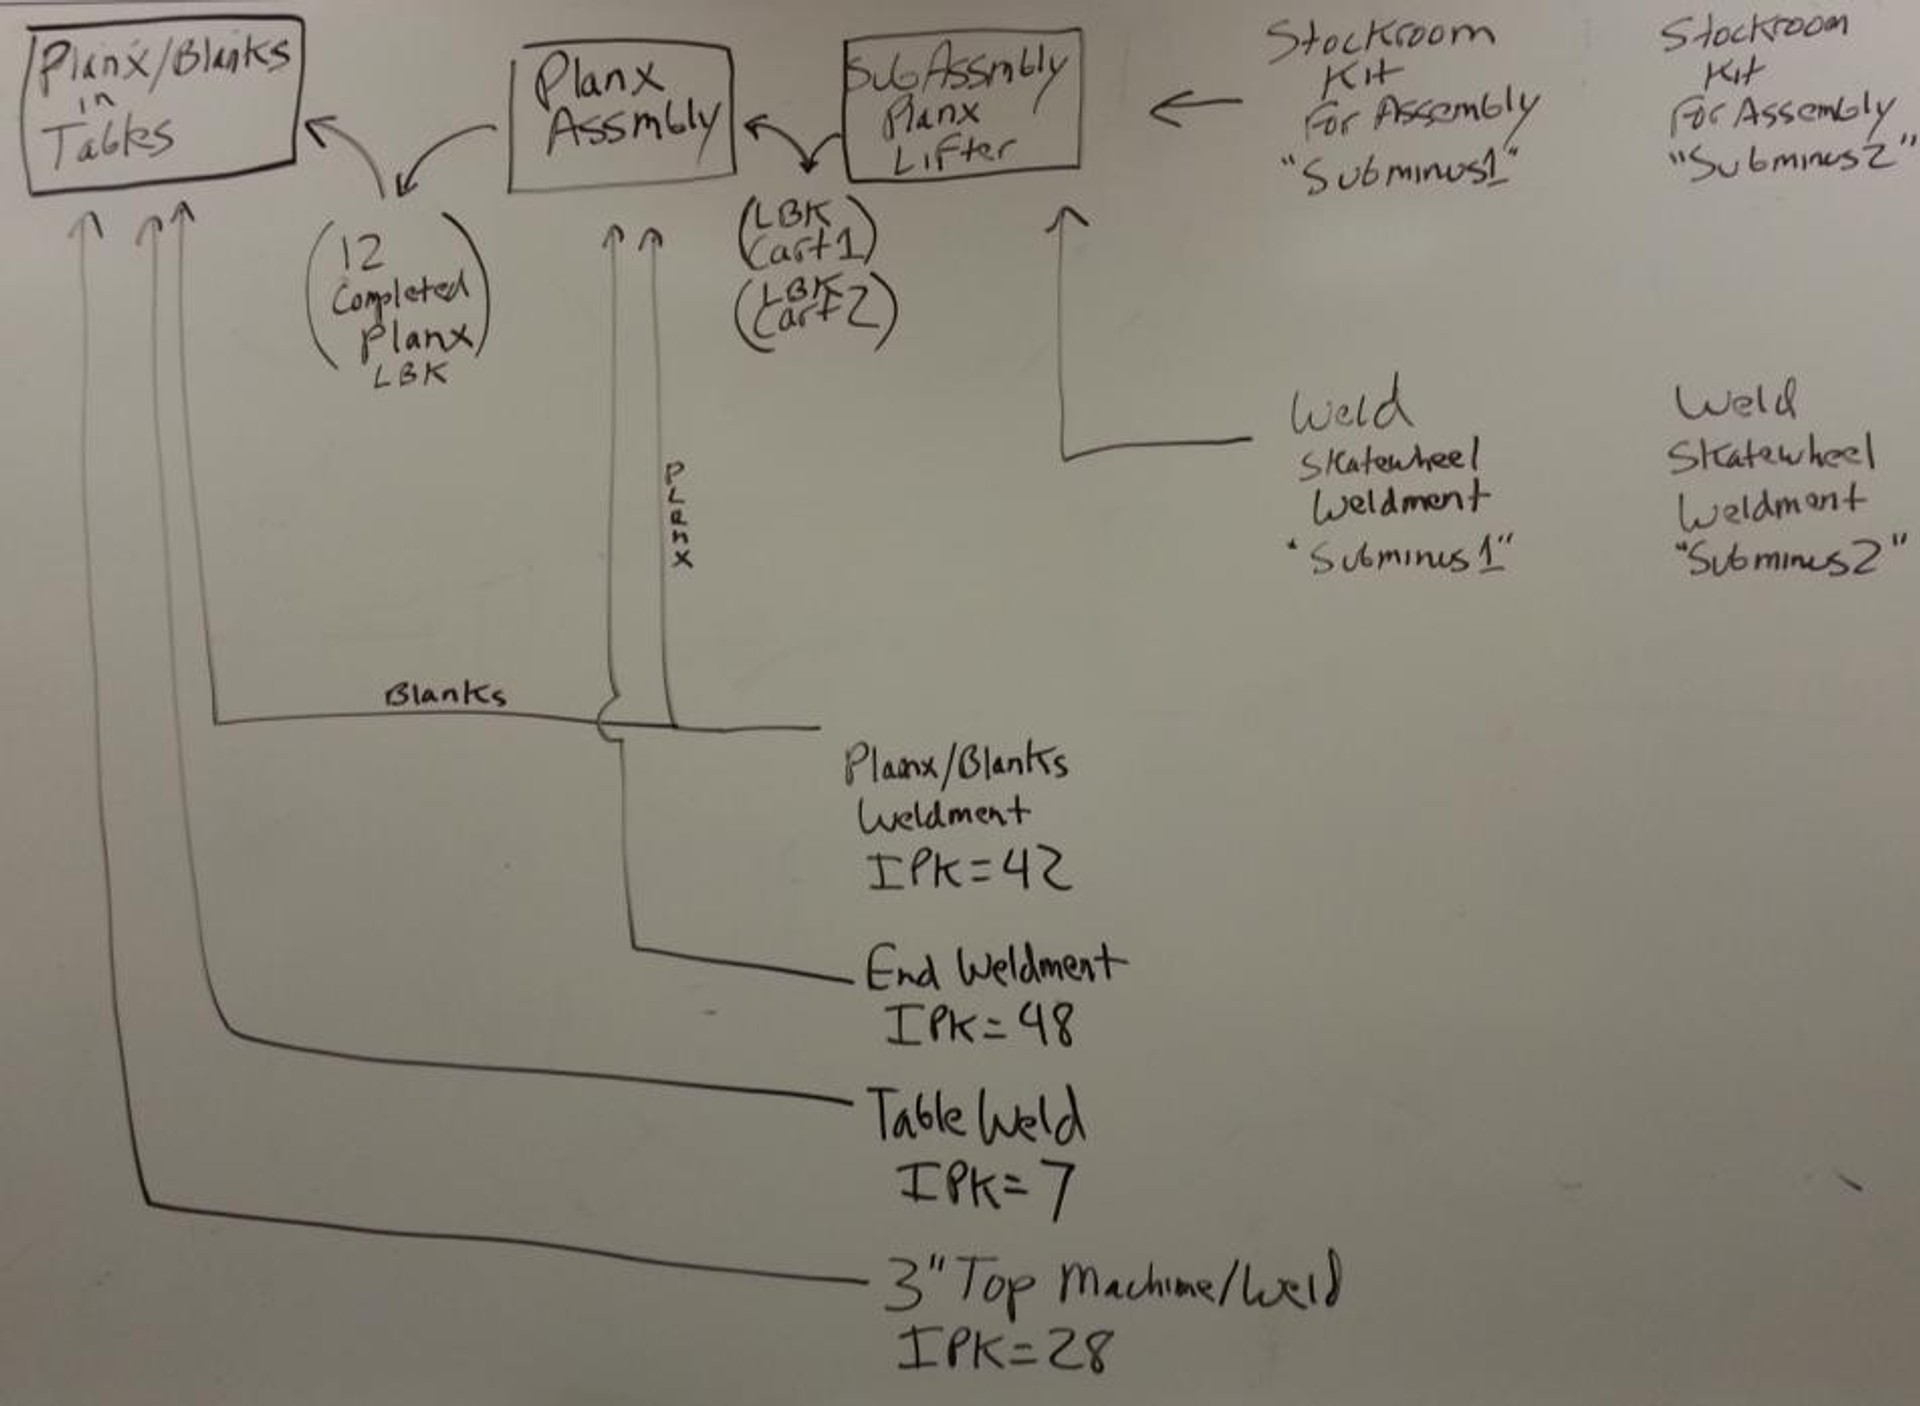 Planx/Blanks
in
Tables
Planx
Assmbly
SubAssmbly
Planx
Lifter
Stockroom
Kit
For Assembly
"Subminus1"
Stockroom
Kit
For Assembly
"Subminus2"
12
Completed
Planx
LBK
(LBK
Cart1)
(LBK
Cart2)
Planx
Weld
Skatewheel
Weldment
"Subminus1"
Weld
Skatewheel
Weldment
"Subminus2"
Blanks
Planx/Blanks
Weldment
IPK=42
End Weldment
IPK=48
Table Weld
IPK=7
3" Top Machine/Weld
IPK=28